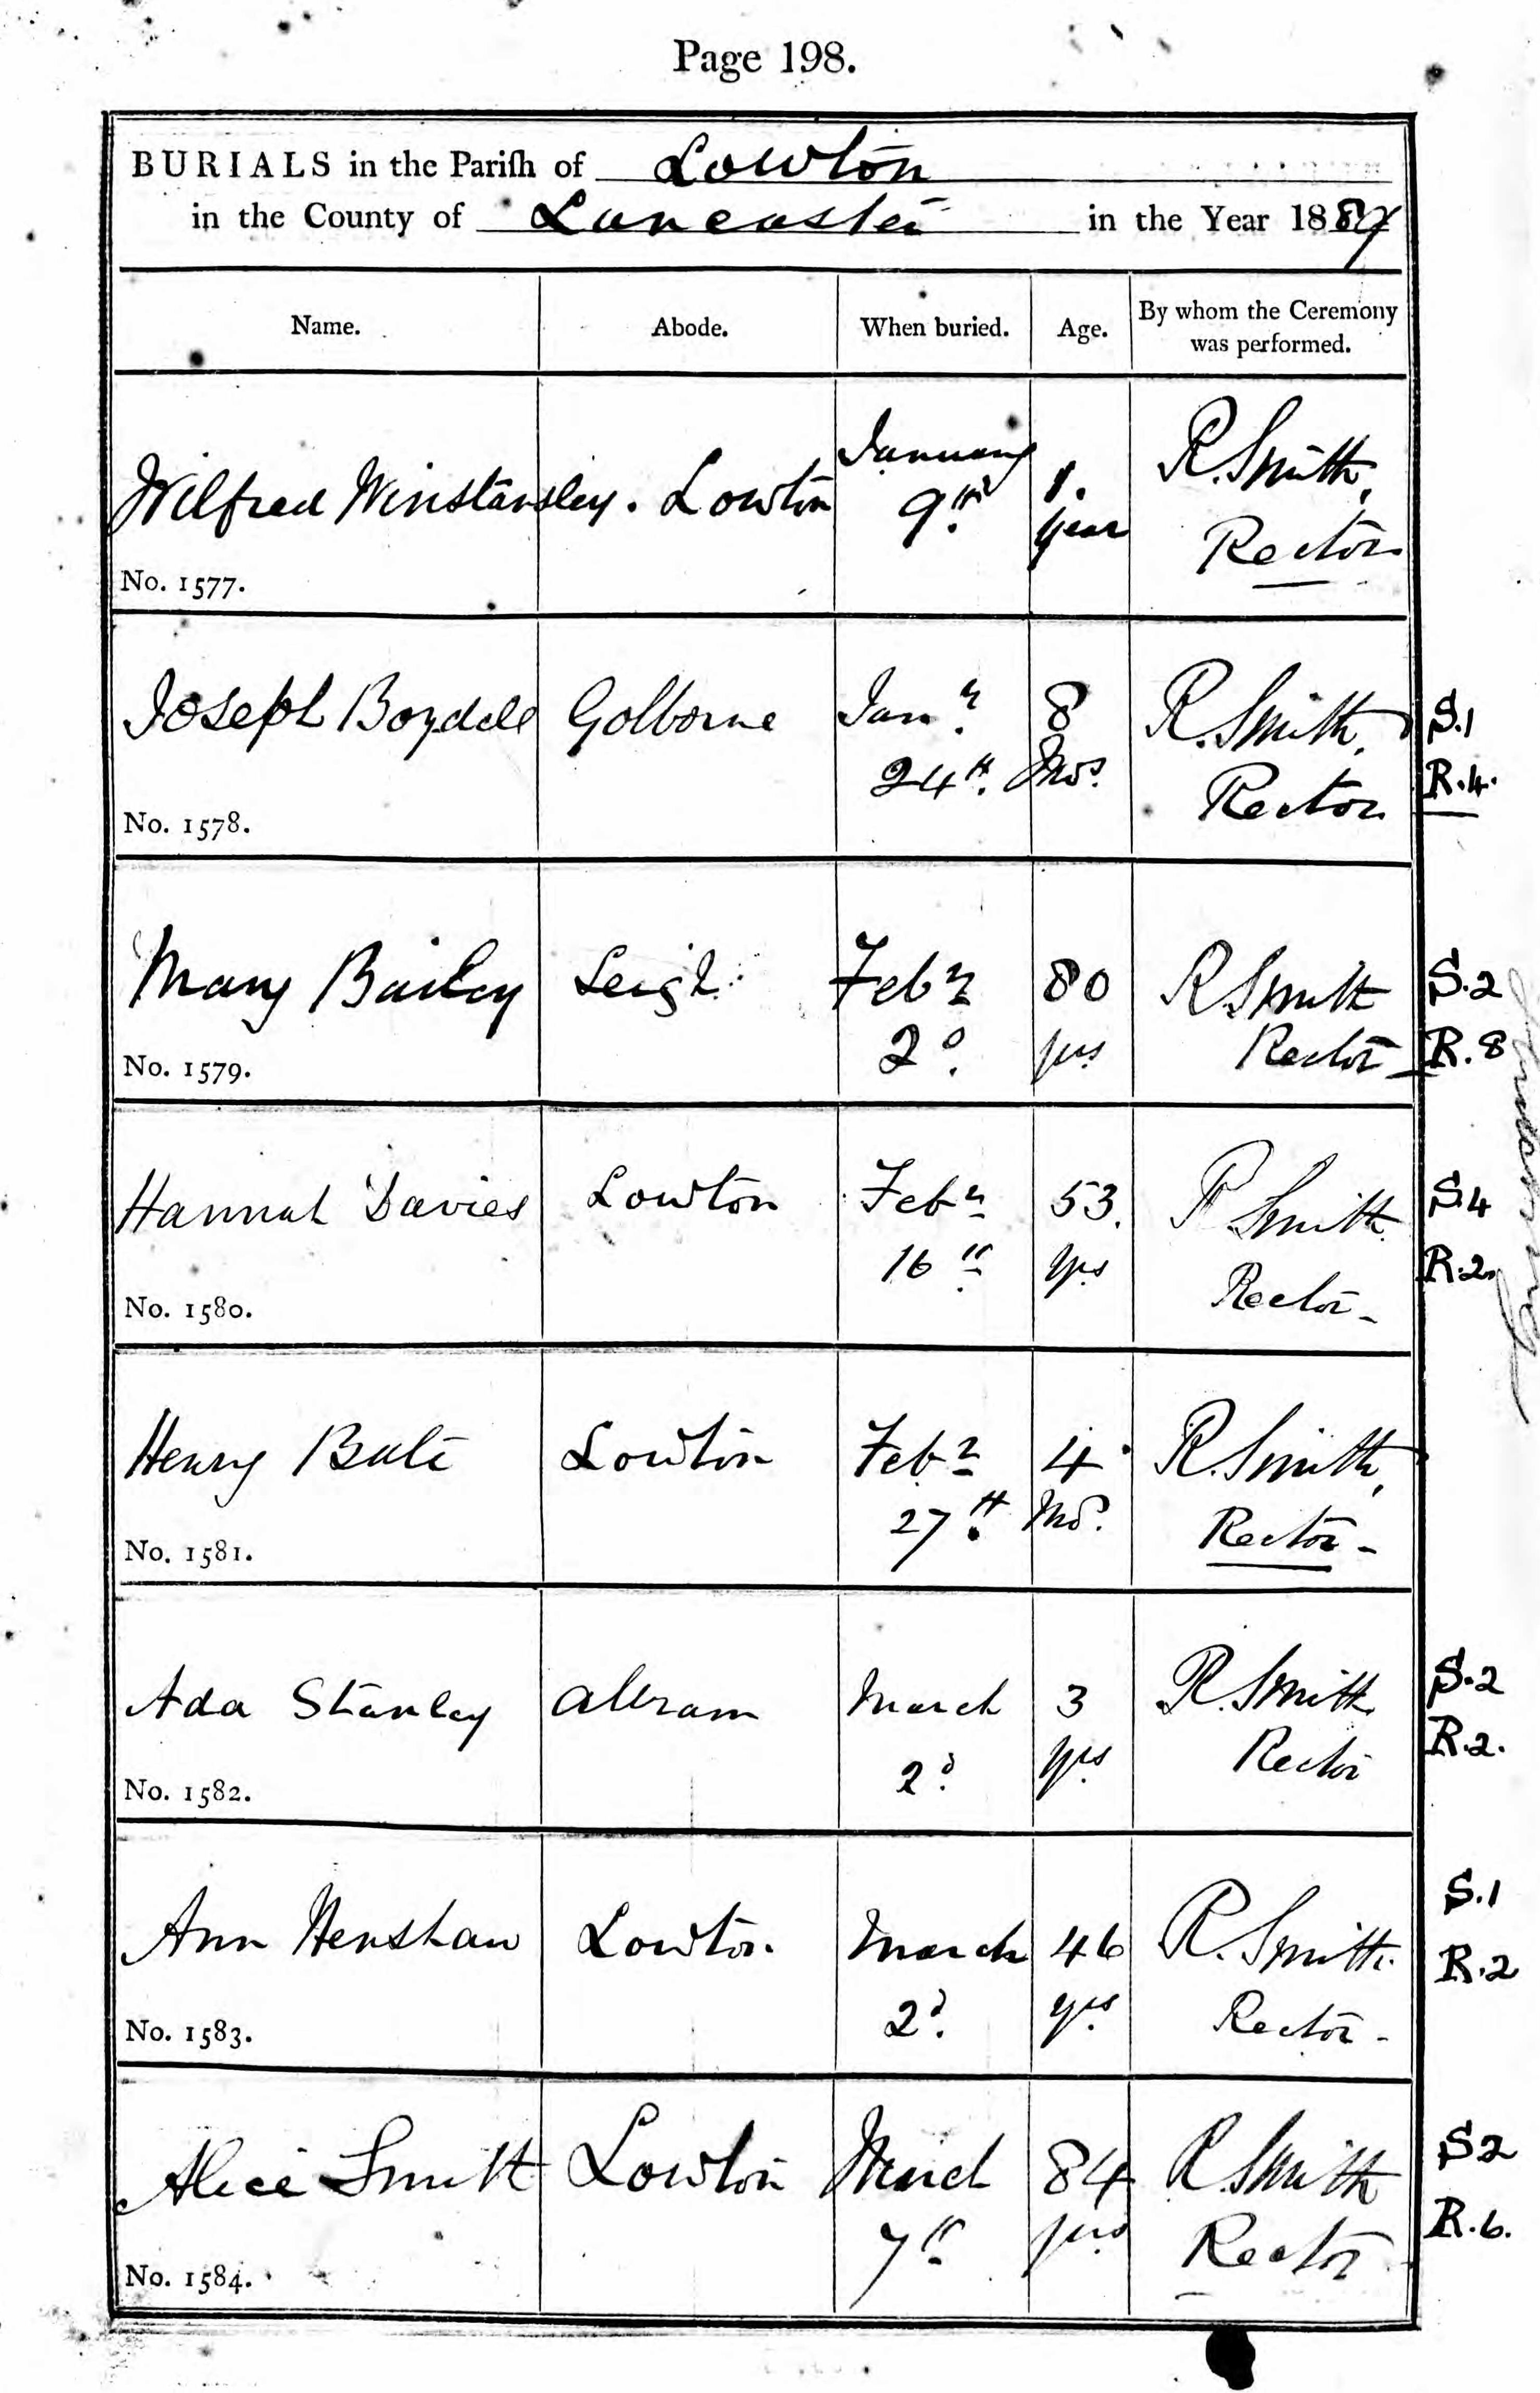 Page 198.
BURIALS in the Pariſh of Lowton
in the County of Lancaster in the Year 1889
Name. Abode. When buried. Age. By whom the Ceremony was performed.
Wilfred Winstanley. Lowton January 9th 1. year R. Smith, Rector
No. 1577.
Joseph Boydell Golborne Jany 24th. 8 Mos. R. Smith, Rector
No. 1578.
S.1
R.4.
Mary Bailey Leigh Feby 2d. 80 yrs R Smith Rector
No. 1579.
S.2
R.8
Hannah Davies Lowton Feby 16th 53. yrs R Smith Rector
No. 1580.
S.4
R.2.
Henry Bate Lowton Feby 27th 4 Mos. R. Smith, Rector
No. 1581.
Ada Stanley Abram March 2d. 3 yrs R. Smith Rector
No. 1582.
S.2
R.2.
Ann Henshaw Lowton March 2d. 46 yrs. R. Smith. Rector
No. 1583.
S.1
R.2
Alice Smith Lowton March 7th 84 yrs R. Smith Rector
No. 1584.
S2
R.6.